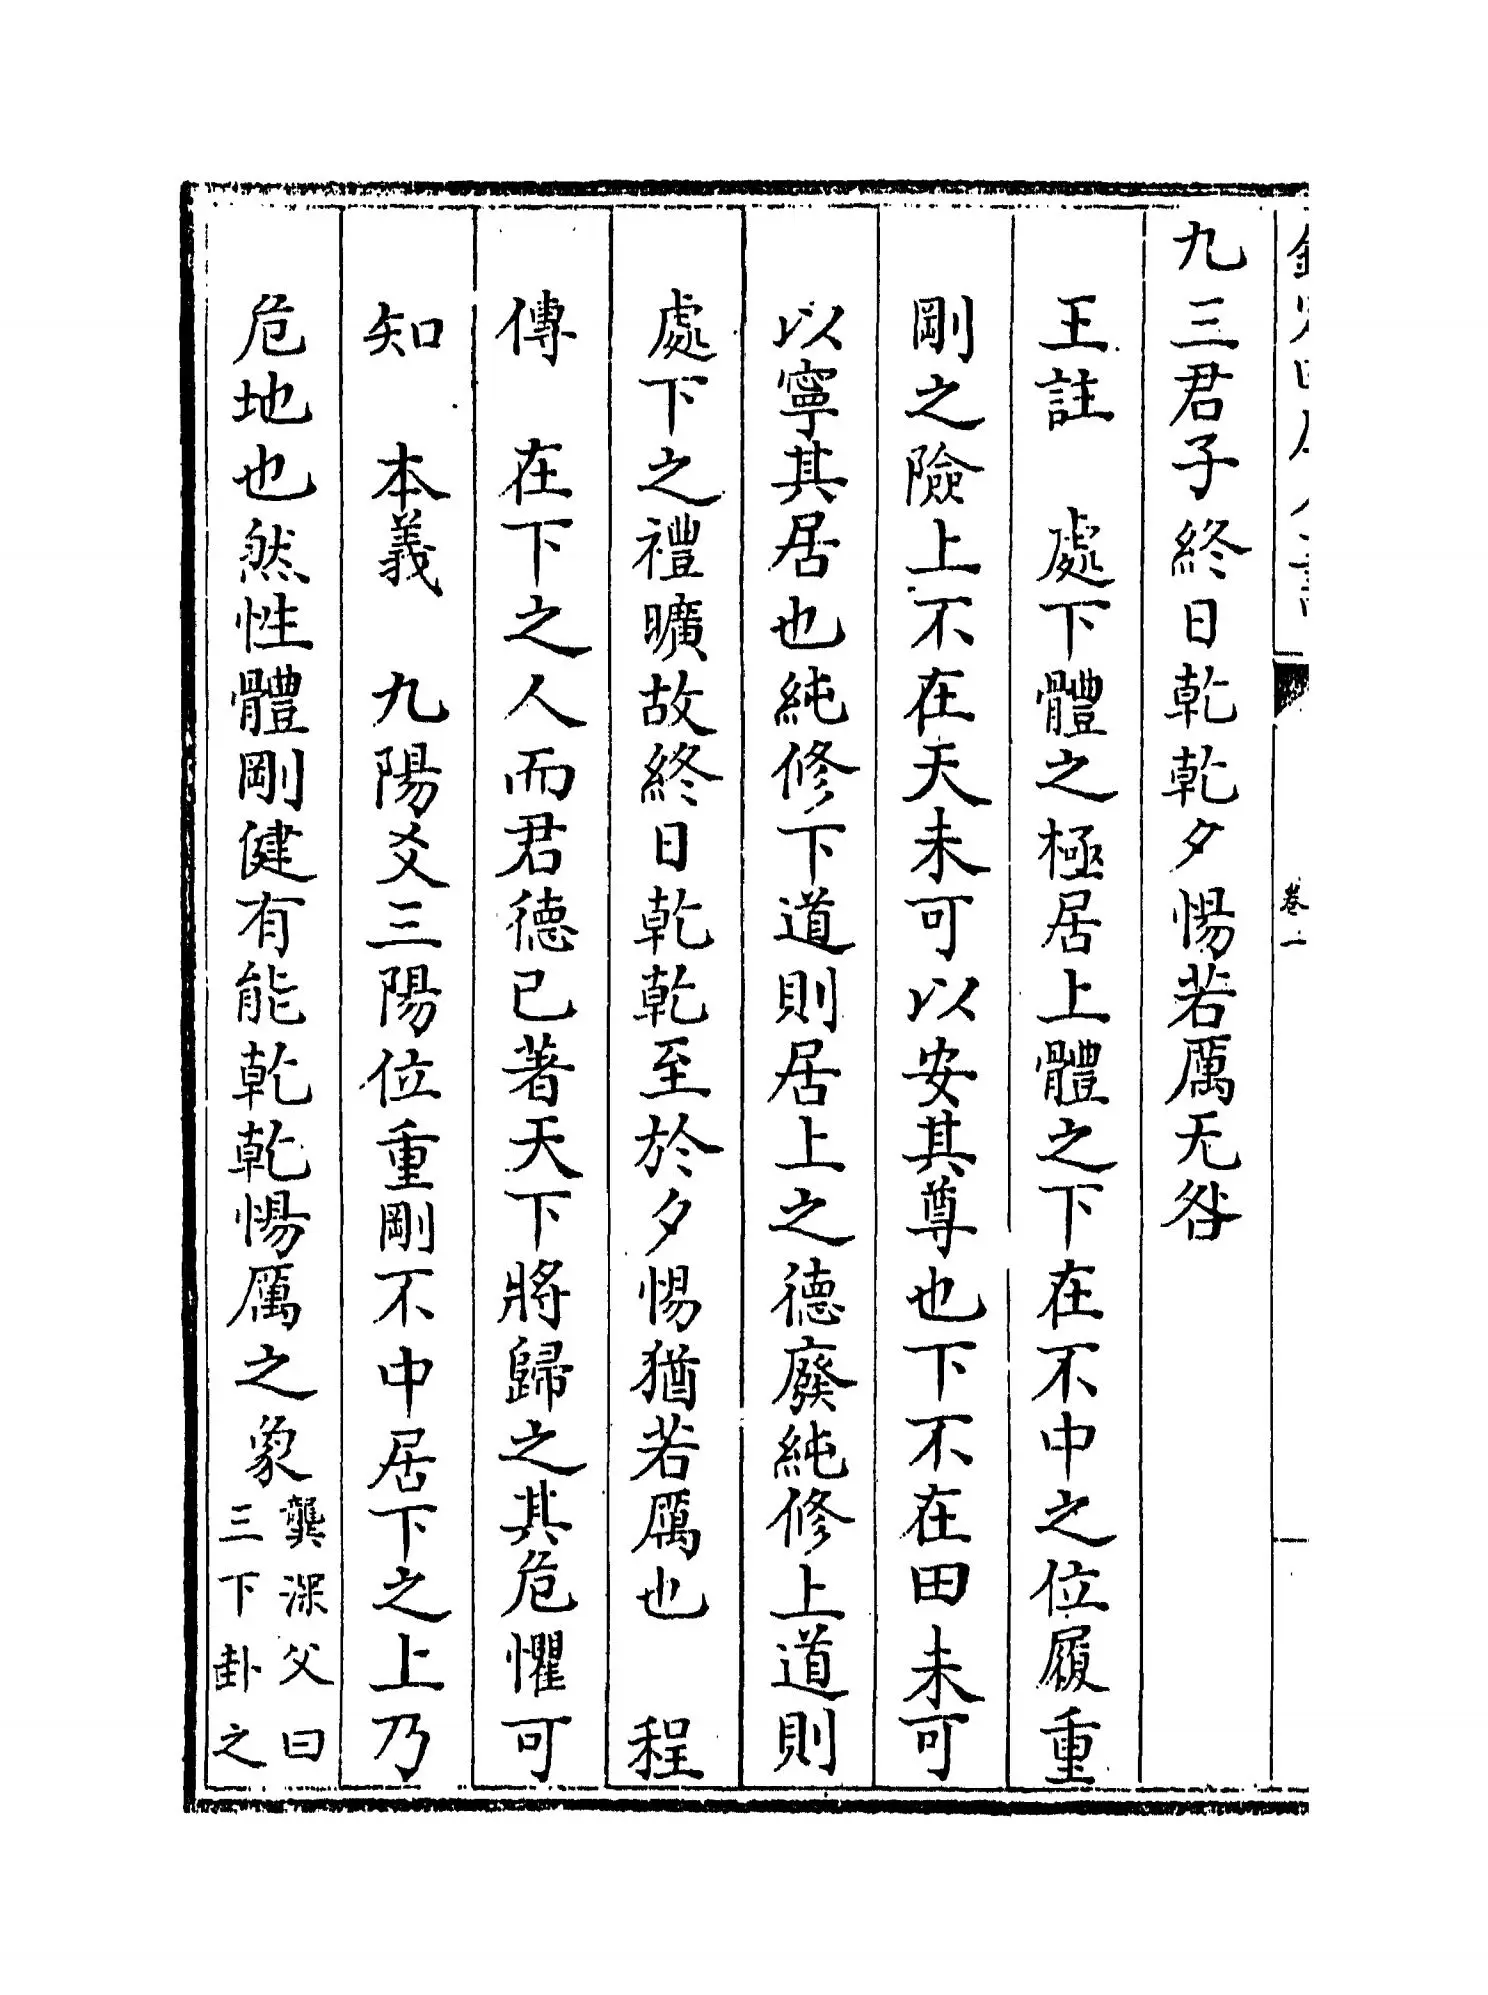 九三君子終日乾乾夕惕若厲无咎
王註 處下體之極居上體之下在不中之位履重
剛之險上不在天未可以安其尊也下不在田未可
以寧其居也純修下道則居上之德廢純修上道則
處下之禮曠故終日乾乾至於夕惕猶若厲也 程
傳 在下之人而君德已著天下將歸之其危懼可
知 本義 九陽爻三陽位重剛不中居下之上乃
危地也然性體剛健有能乾乾惕厲之象
龔深父曰
三下卦之
卷一